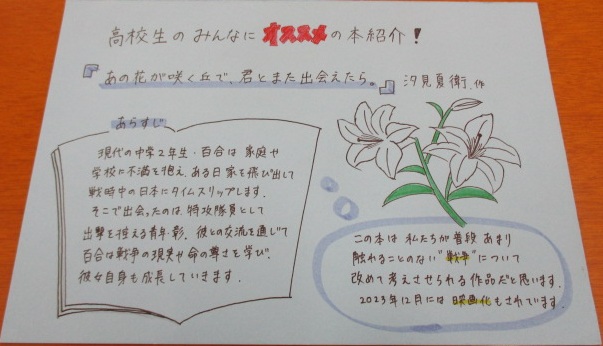 高校生のみんなにオススメの本紹介！
『あの花が咲く丘で、君とまた出会えたら。』 汐見夏衛.作
あらすじ
現代の中学2年生・百合は家庭や
学校に不満を抱え、ある日家を飛び出して
戦時中の日本にタイムスリップします。
そこで出会ったのは、特攻隊員として
出撃を控える青年・彰。彼との交流を通じて
百合は戦争の現実や命の尊さを学び、
彼女自身も成長していきます。
この本は私たちが普段あまり
触れることのない"戦争"について
改めて考えさせられる作品だと思います。
2023年12月には映画化もされています。